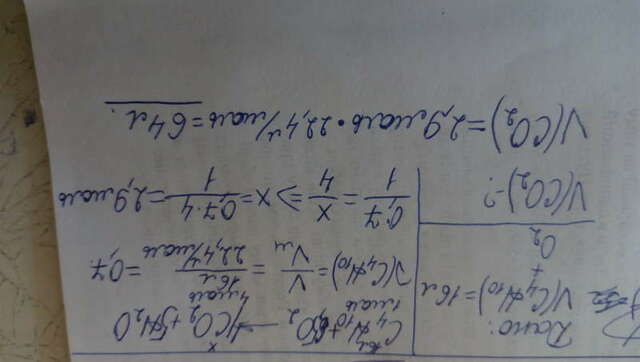 Дано:
V(C4H10)=16л
+
O2
V(CO2)-?
C4H10+6,5O2 → 4CO2+5H2O
1моль 4моль
ν(C4H10)=V/Vм=16л/22,4л/моль=0,7
0,7/1=x/4=>x=0,7·4/1=2,9моль
V(CO2)=2,9моль·22,4л/моль=64л.